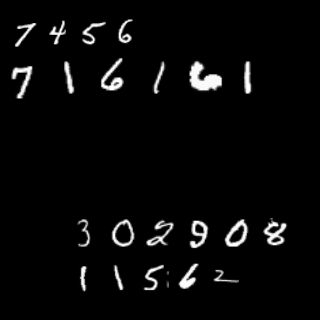 7456
716161
302908
11562